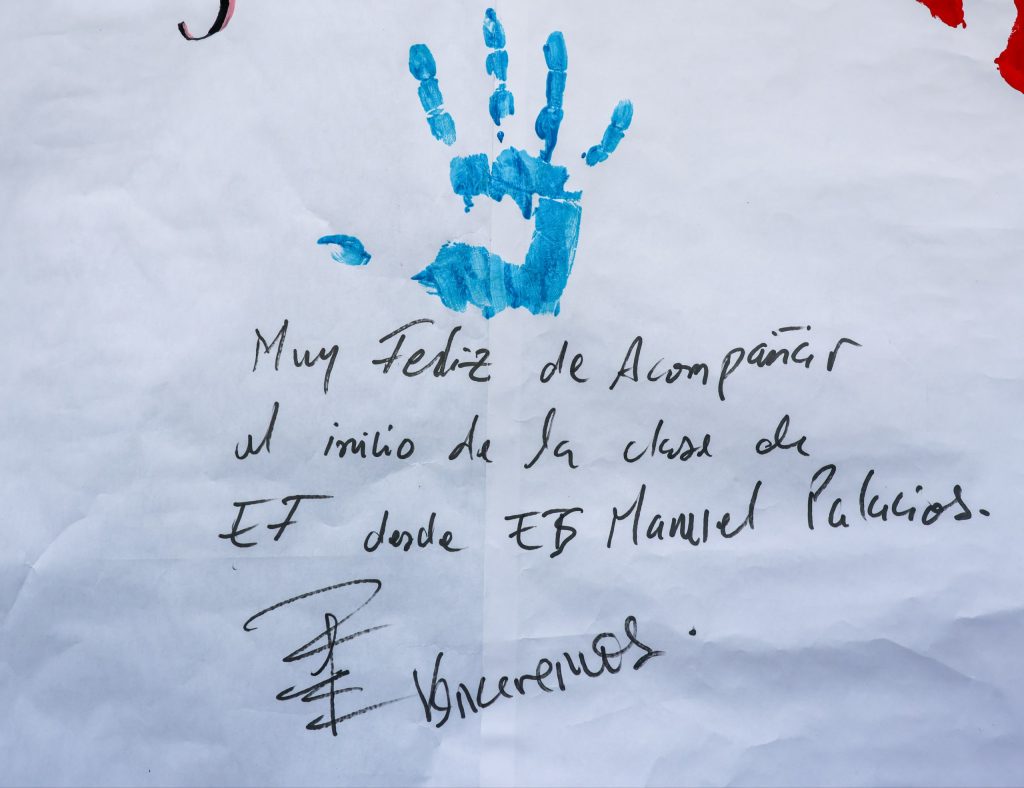 Muy Feliz de Acompañar
el inicio de la clase de
EF desde EB Manuel Palacios.
Venceremos.